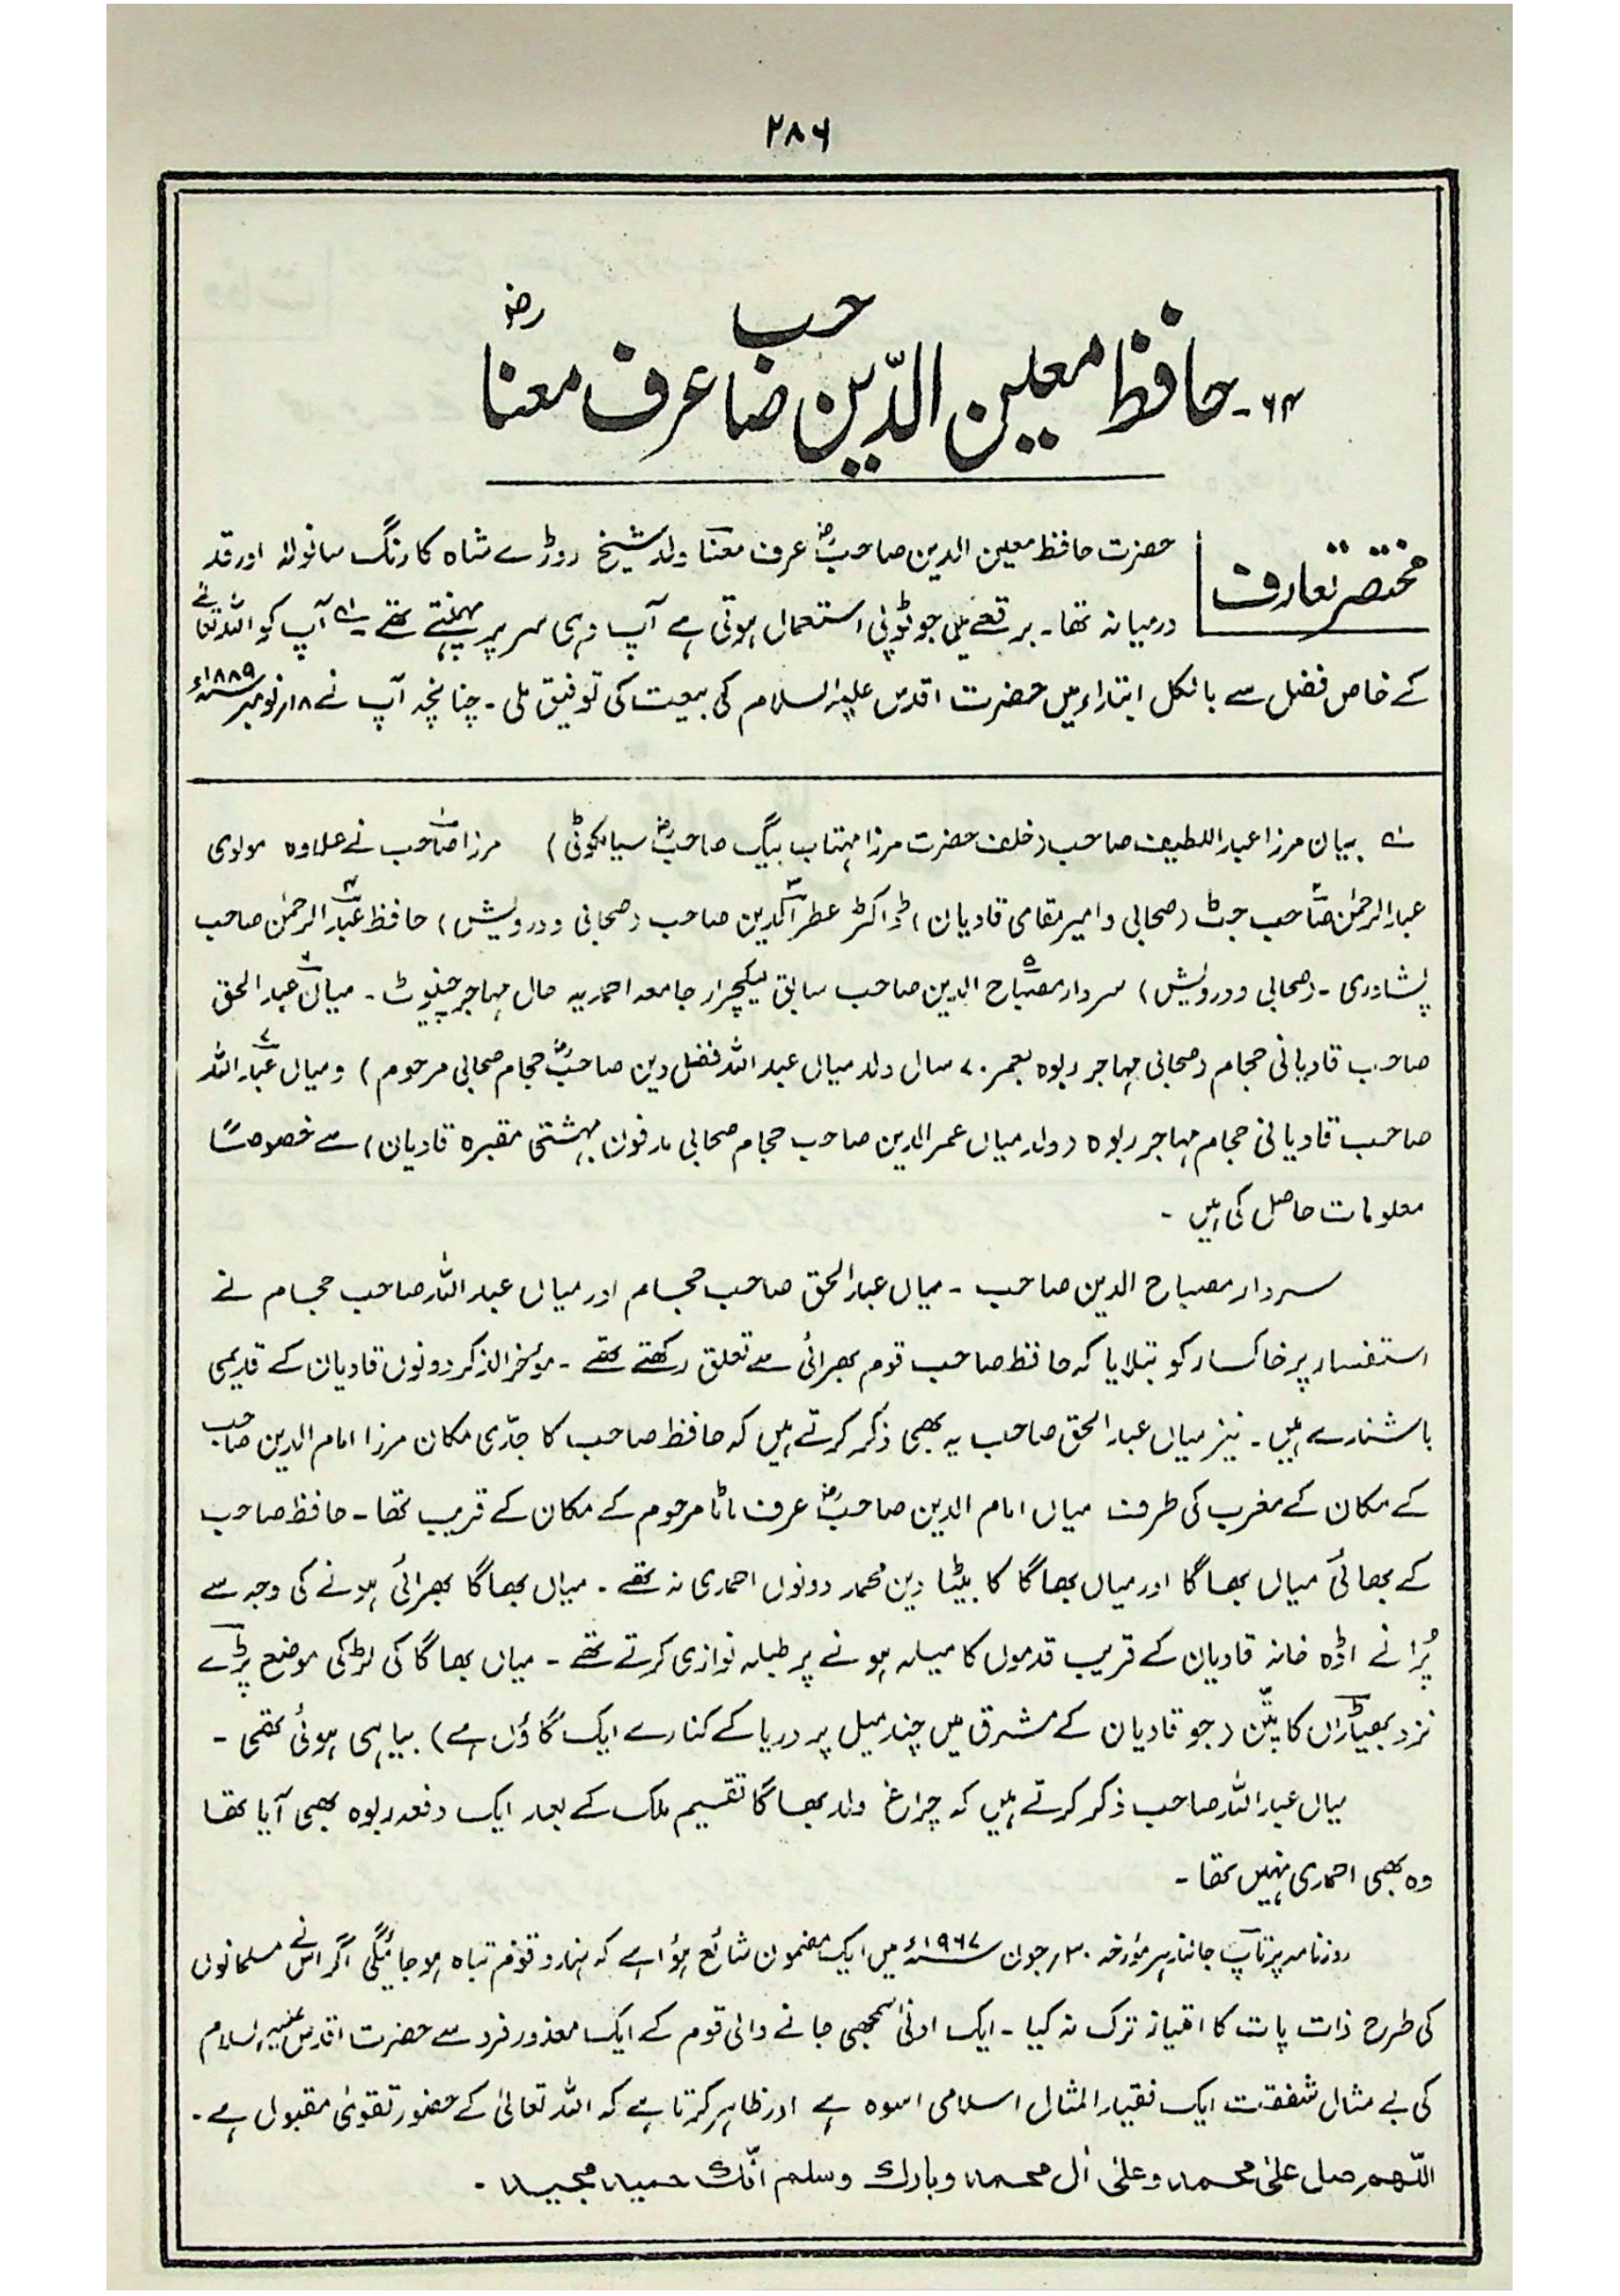 ۲۸۶
۶۴۔ حافظ معین الدّین صاحب عرف معنا رضؓ
مختصر تعارف
حضرت حافظ معین الدین صاحبؓ عرف معنّا ولد شیخ روڑے شاہ کا رنگ سانولا اور قد
درمیانہ تھا۔ برقعے میں جو ٹوپی استعمال ہوتی ہے آپ وہی سر پر پہنتے تھے ؎۱ آپ کو اللہ تعالےٰ نے
کے خاص فضل سے بالکل ابتداء میں حضرت اقدس علیہ السلام کی بیعت کی توفیق ملی۔ چنانچہ آپ نے ۱۸؍ نومبر ۱۸۸۹ء
؎۱ بیان مرزا عبداللطیف صاحب (خلف حضرت مرزا مہتاب بیگ صاحبؓ سیالکوٹی) مرزا صاحب۱ نے علاوہ مولوی
عبدالرحمٰن صاحب۲ جٹ (صحابی و امیر مقامی قادیان) ڈاکٹر عطر الدین۳ صاحب (صحابی و درویش) حافظ عبدالرحمٰن۴ صاحب
پشاوری۔ (صحابی و درویش) سردار مصباح۵ الدین صاحب سابق لیکچرار جامعہ احمدیہ حال مہاجر چنیوٹ۔ میاں۶ عبد الحق
صاحب قادیانی حجام (صحابی مہاجر ربوہ بعمر ۷۰ سال ولد میاں عبد اللہ فضل دین صاحبؓ حجام صحابی مرحوم) و میاں عبد۷ اللہ
صاحب قادیانی حجام مہاجر ربوہ (ولد میاں عمر الدین صاحب حجام صحابی مدفون بہشتی مقبرہ قادیان) سے خصوصاً
معلومات حاصل کی ہیں ۔
سردار مصباح الدین صاحب ۔ میاں عبد الحق صاحب حجام اور میاں عبد اللہ صاحب حجام نے
استفسار پر خاکسار کو بتلایا کہ حافظ صاحب قوم بھرائی سے تعلق رکھتے تھے ۔ مؤخر الذکر دونوں قادیان کے قدیمی
باشندے ہیں ۔ نیز میاں عبد الحق صاحب یہ بھی ذکر کرتے ہیں کہ حافظ صاحب کا جدّی مکان مرزا امام الدین صاحب
کے مکان کے مغرب کی طرف میاں امام الدین صاحبؓ عرف ماٹا مرحوم کے مکان کے قریب تھا ۔ حافظ صاحب
کے بھائی میاں بھاگا اور میاں بھاگا کا بیٹا دین محمد دونوں احمدی نہ تھے ۔ میاں بھاگا بھرائی ہونے کی وجہ سے
پُرانے اڈہ خانہ قادیان کے قریب قدموں کا میلہ ہونے پر طبلہ نوازی کرتے تھے ۔ میاں بھاگا کی لڑکی موضع پڑے
نزد بھیٹاں کا پتّن (جو قادیان کے مشرق میں چند میل پر دریا کے کنارے ایک گاؤں ہے) بیاہی ہوئی تھی ۔
میاں عبد اللہ صاحب ذکر کرتے ہیں کہ چراغ ولد بھاگا تقسیم ملک کے بعد ایک دفعہ ربوہ بھی آیا تھا
وہ بھی احمدی نہیں تھا ۔
روزنامہ پرتاپ جالندھر مؤرخہ ۳۰؍ جون ۱۹۶۷ء میں ایک مضمون شائع ہوا ہے کہ ہندو قوم تباہ ہو جائیگی اگر اس نے مسلمانوں
کی طرح ذات پات کا امتیاز ترک نہ کیا ۔ ایک ادنیٰ سمجھی جانے والی قوم کے ایک معذور فرد سے حضرت اقدس علیہ السلام
کی بے مثال شفقت ایک فقید المثال اسلامی اسوہ ہے اور ظاہر کرتا ہے کہ اللہ تعالیٰ کے حضور تقویٰ مقبول ہے ۔
اللّٰھم صل علیٰ محمد وعلیٰ اٰل محمد وبارك وسلم انّك حمید مجید ۔